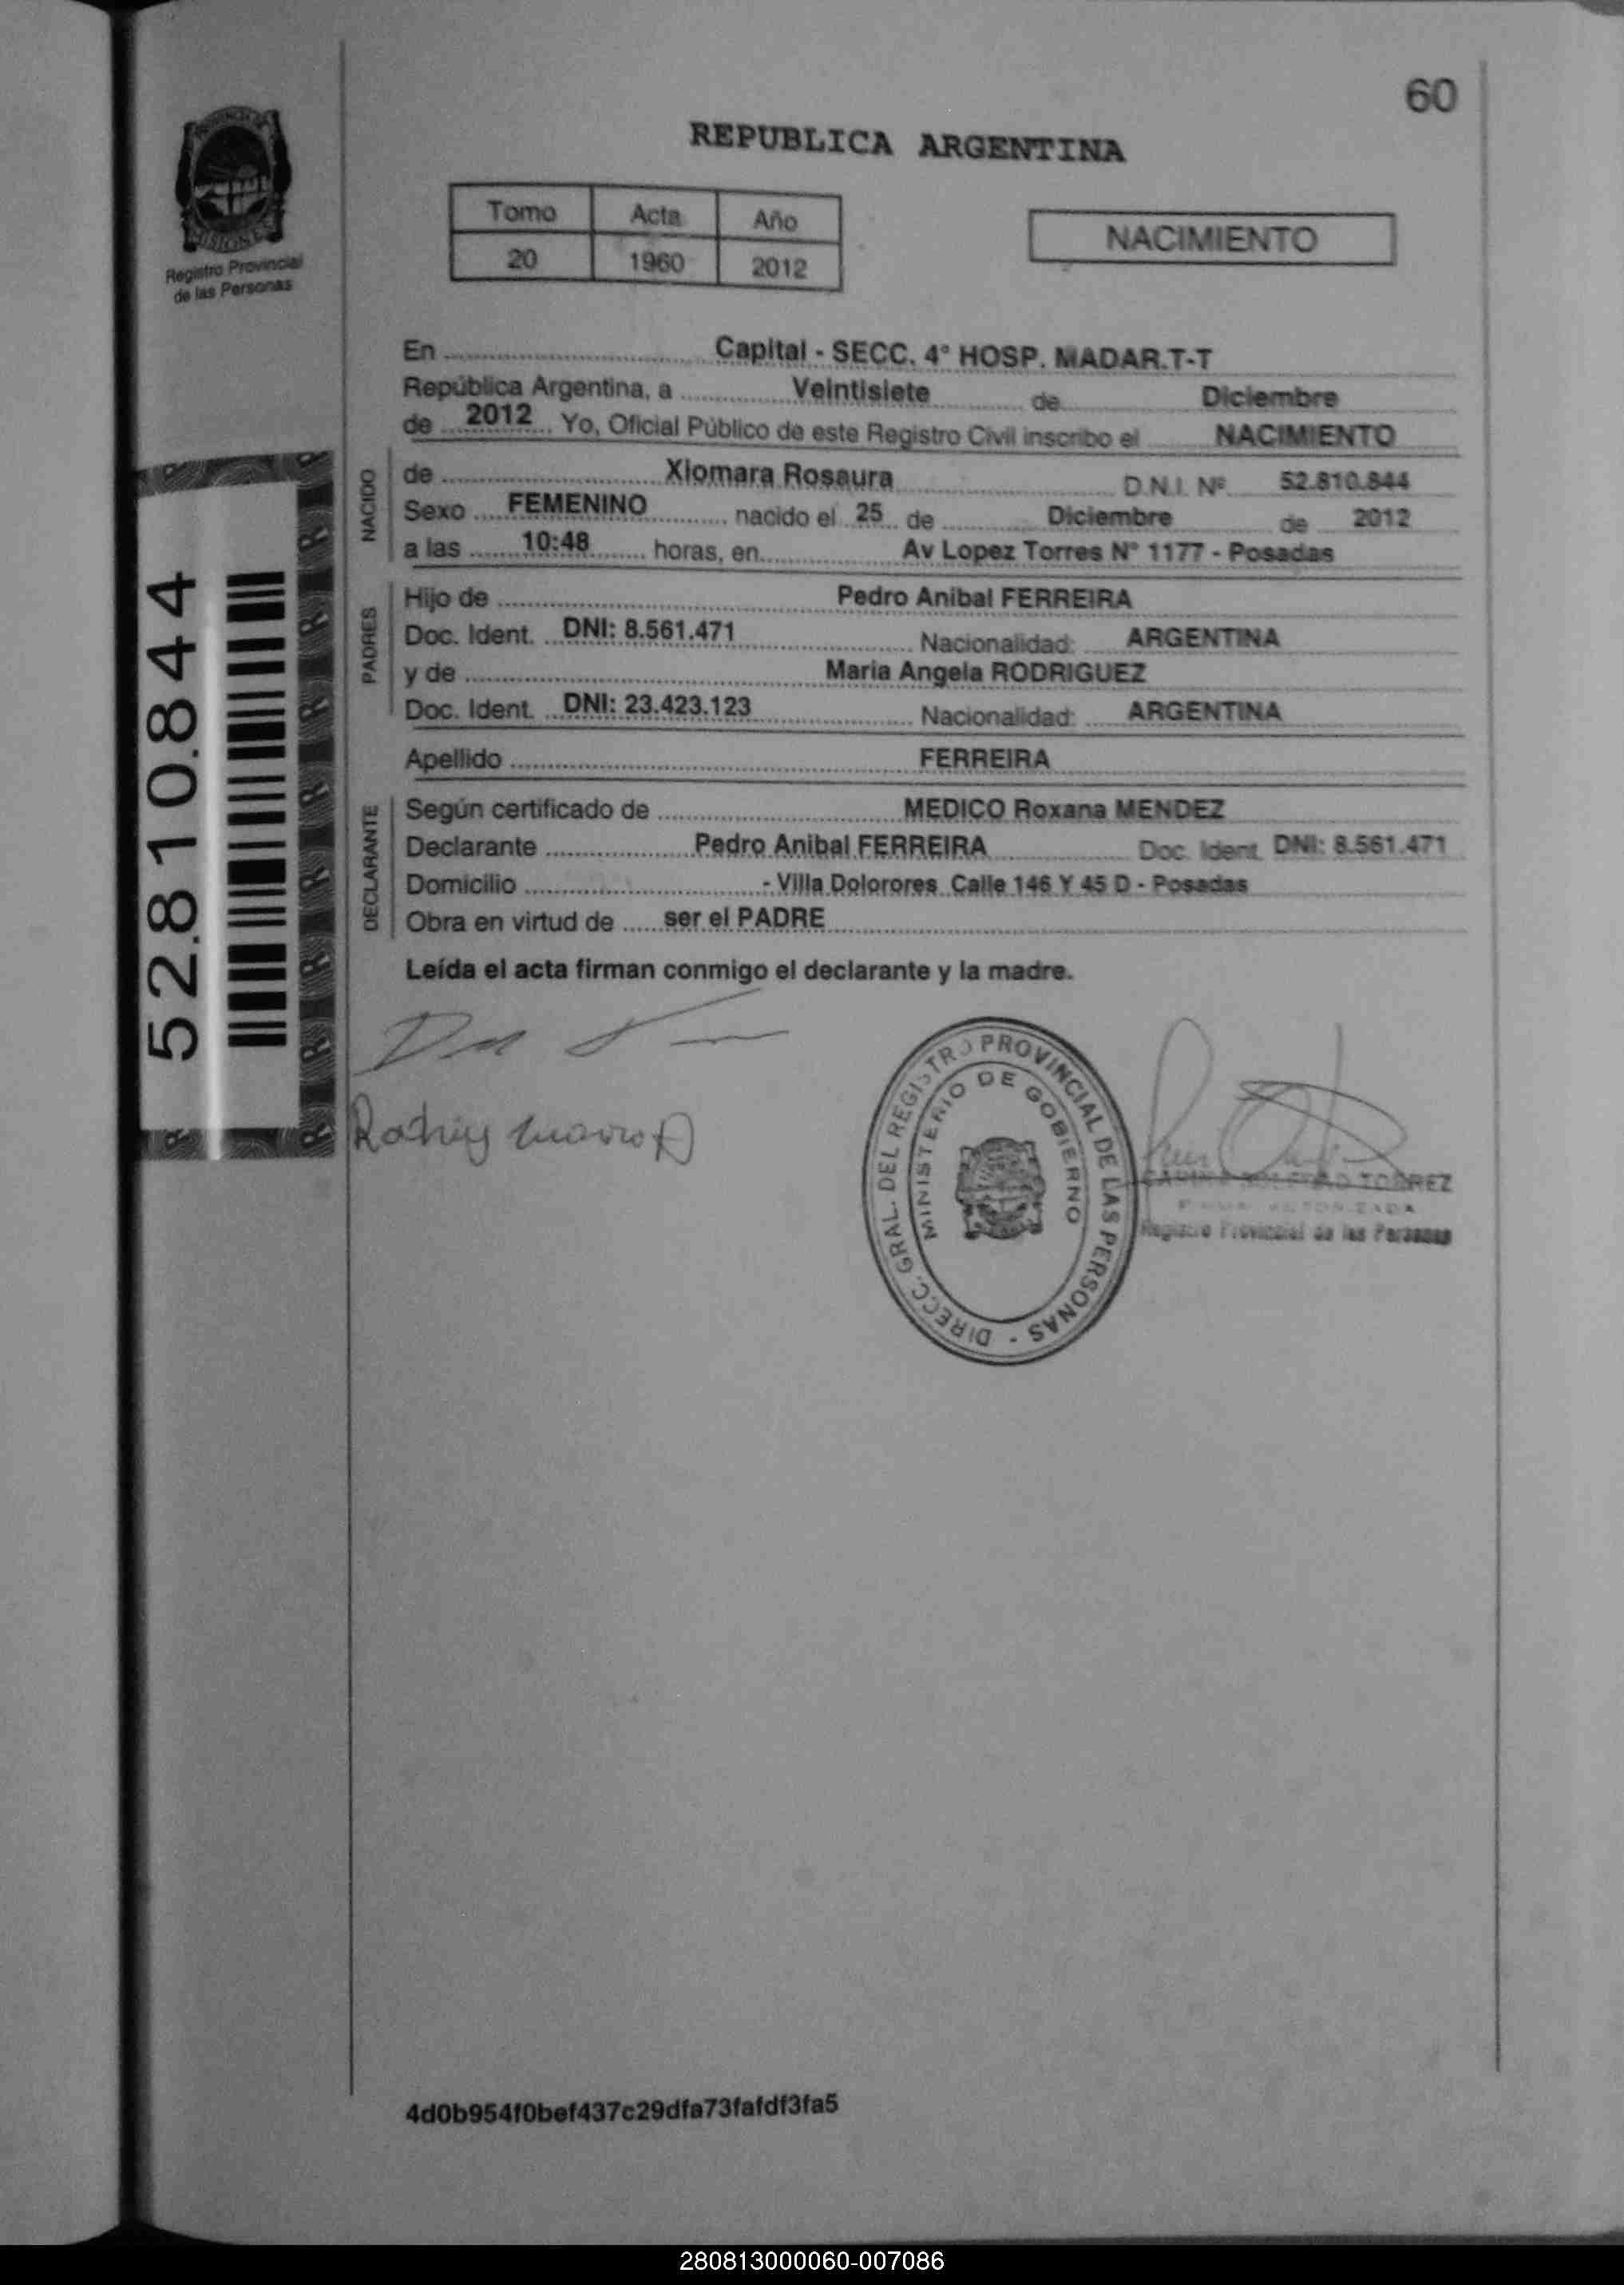 60
REPUBLICA ARGENTINA
PROVINCIA DE
MISIONES
Registro Provincial
de las Personas
Tomo Acta Año
20 1960 2012
NACIMIENTO
En Capital - SECC. 4° HOSP. MADAR.T-T
República Argentina, a Veintisiete de Diciembre
de 2012 Yo, Oficial Público de este Registro Civil inscribo el NACIMIENTO
NACIDO
de Xiomara Rosaura D.N.I. Nº 52.810.844
Sexo FEMENINO nacido el 25 de Diciembre de 2012
a las 10:48 horas, en Av Lopez Torres N° 1177 - Posadas
PADRES
Hijo de Pedro Anibal FERREIRA
Doc. Ident. DNI: 8.561.471 Nacionalidad: ARGENTINA
y de Maria Angela RODRIGUEZ
Doc. Ident. DNI: 23.423.123 Nacionalidad: ARGENTINA
Apellido FERREIRA
DECLARANTE
Según certificado de MEDICO Roxana MENDEZ
Declarante Pedro Anibal FERREIRA Doc. Ident. DNI: 8.561.471
Domicilio - Villa Dolorores Calle 146 Y 45 D - Posadas
Obra en virtud de ser el PADRE
Leída el acta firman conmigo el declarante y la madre.
52.810.844
DIRECC. GRAL. DEL REGISTRO PROVINCIAL DE LAS PERSONAS -
MINISTERIO DE GOBIERNO
TORREZ
Registro Provincial de las Personas
4d0b954f0bef437c29dfa73fafdf3fa5
280813000060-007086